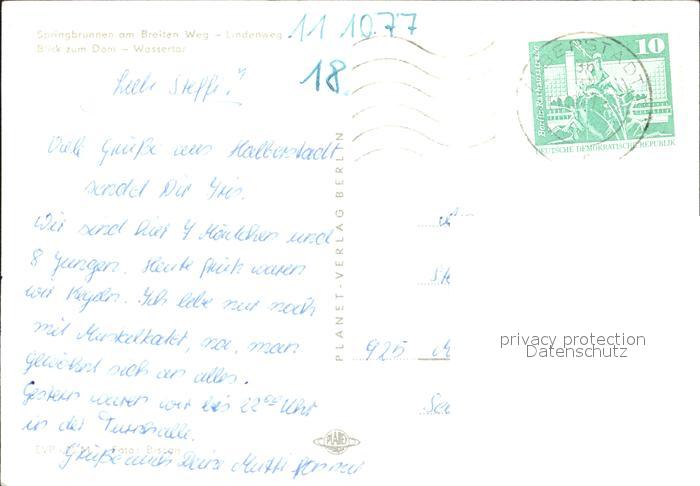 Springbrunnen am Breiten Weg – Lindenweg
Blick zum Dom – Wassertor
11 10.77
18.
Liebe Steffi!
Viele Grüße aus Halberstadt
sendet Dir Iris.
Wir sind hier 7 Mädchen und
8 Jungen. Heute früh waren
wir Kegeln. Ich lebe nur noch
mit Muskelkater, na, man
gewöhnt sich an alles.
Gestern waren wir bis 22⁰⁰ Uhr
in der Turnhalle.
Grüße auch Deine Mutti
EVP Foto: Biscan
PLANET-VERLAG BERLIN
PLANET
925
10
Berlin, Rathausstraße
DEUTSCHE DEMOKRATISCHE REPUBLIK
privacy protection
Datenschutz